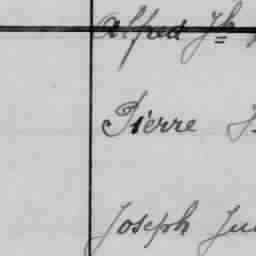 Alfred Jh
Pierre J
Joseph Ju